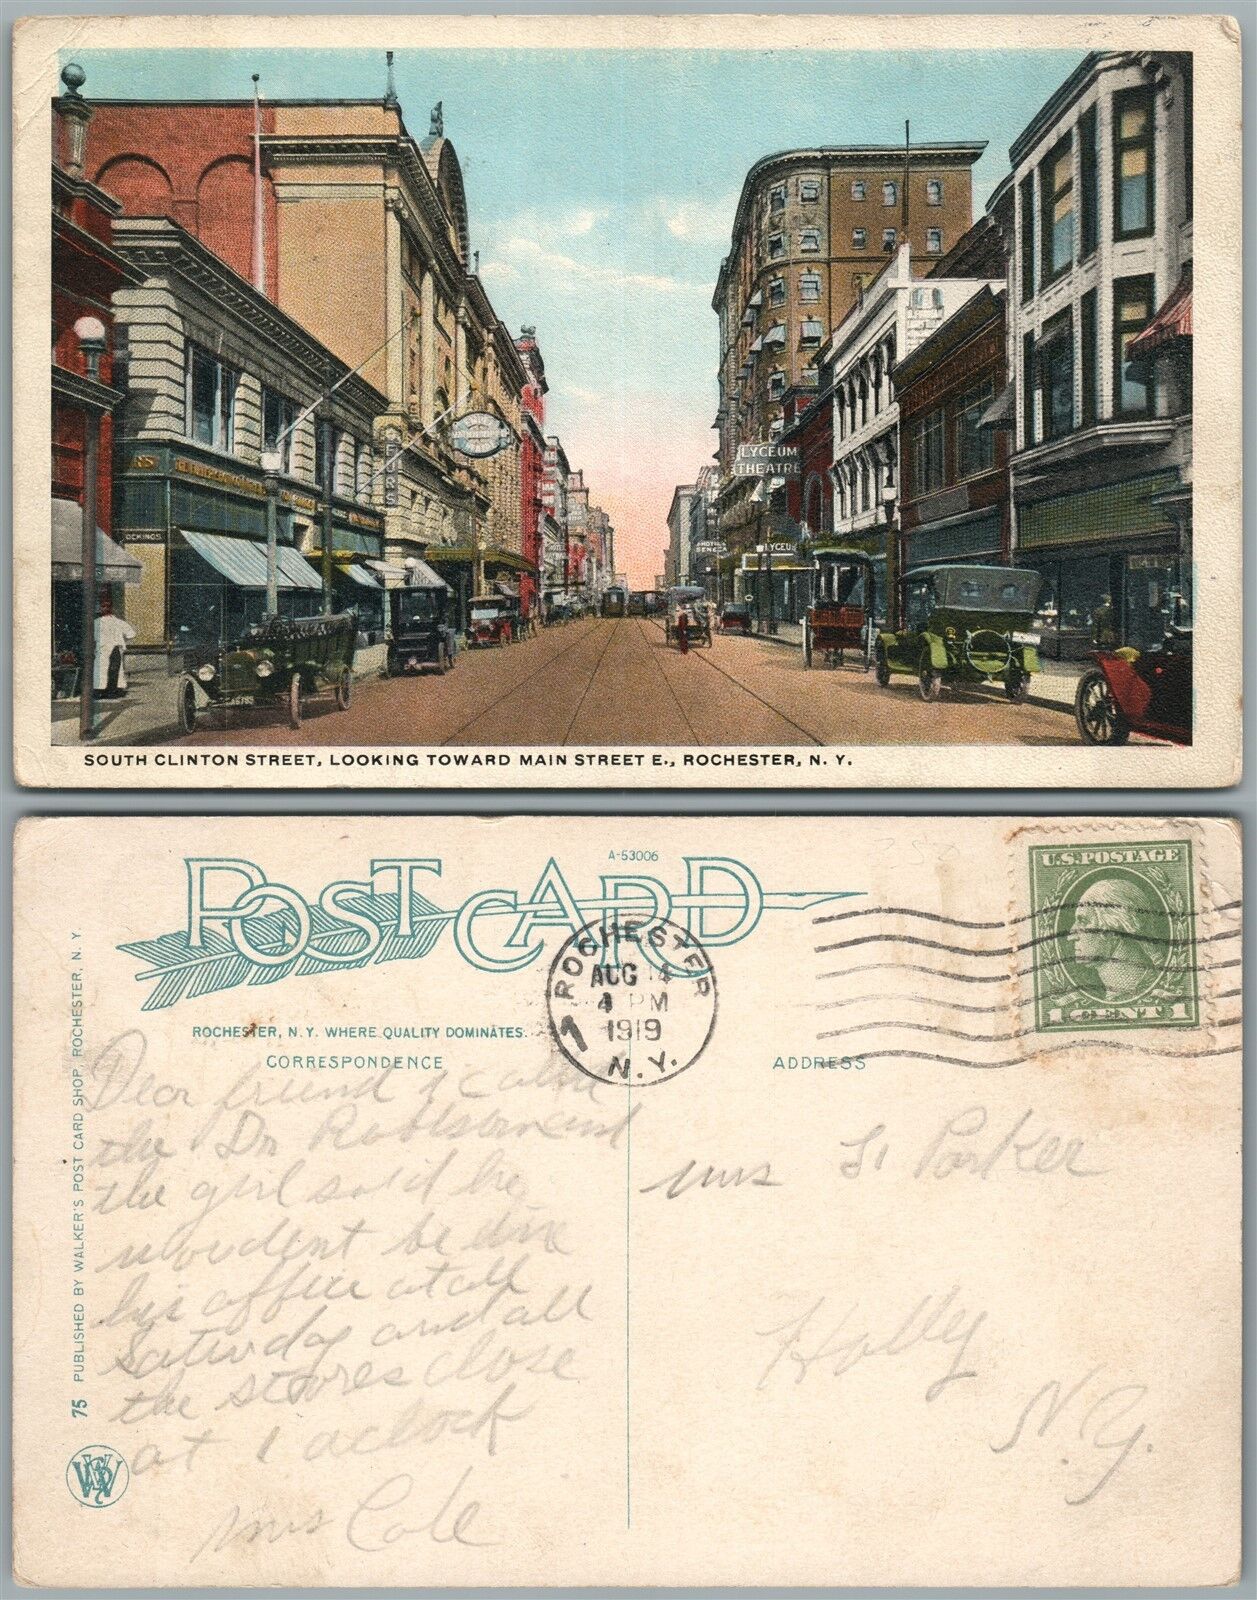 FURS
OCKINGS
LYCEUM
THEATRE
HOTEL
SENECA
LYCEUM
SOUTH CLINTON STREET, LOOKING TOWARD MAIN STREET E., ROCHESTER, N. Y.
A-53006
POST CARD
U.S. POSTAGE
1 CENT 1
ROCHESTER
AUG 14
4 PM
1919
N.Y.
1
ROCHESTER, N. Y. WHERE QUALITY DOMINATES.
CORRESPONDENCE
ADDRESS
Dear friend i called
the Dr
the girl said he
woudent be
his office at all
Saturday and all
the stores close
at 1 aclock
Mrs Cole
Mrs Parker
Holly
N.Y.
75 PUBLISHED BY WALKER'S POST CARD SHOP, ROCHESTER, N. Y